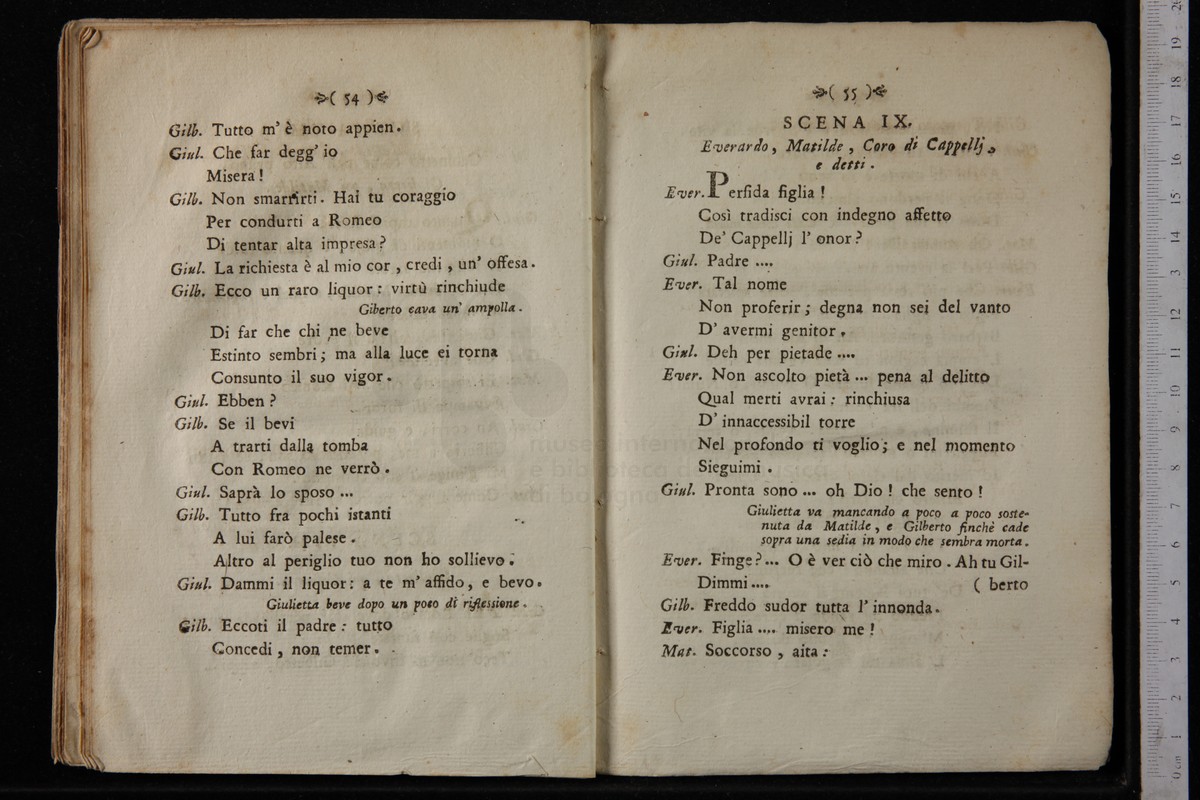 ( 54 )
Gilb. Tutto m' è noto appien.
Giul. Che far degg' io
Misera !
Gilb. Non smarrirti. Hai tu coraggio
Per condurti a Romeo
Di tentar alta impresa ?
Giul. La richiesta è al mio cor , credi , un' offesa .
Gilb. Ecco un raro liquor : virtù rinchiude
Giberto cava un' ampolla .
Di far che chi ne beve
Estinto sembri ; ma alla luce ei torna
Consunto il suo vigor .
Giul. Ebben ?
Gilb. Se il bevi
A trarti dalla tomba
Con Romeo ne verrò .
Giul. Saprà lo sposo ...
Gilb. Tutto fra pochi istanti
A lui farò palese .
Altro al periglio tuo non ho sollievo .
Giul. Dammi il liquor : a te m' affido , e bevo .
Giulietta beve dopo un poco di riflessione .
Gilb. Eccoti il padre : tutto
Concedi , non temer .
( 55 )
SCENA IX.
Everardo , Matilde , Coro di Cappellj ,
e detti .
Ever. Perfida figlia !
Così tradisci con indegno affetto
De' Cappellj l' onor ?
Giul. Padre ....
Ever. Tal nome
Non proferir ; degna non sei del vanto
D' avermi genitor .
Giul. Deh per pietade ....
Ever. Non ascolto pietà ... pena al delitto
Qual merti avrai : rinchiusa
D' innaccessibil torre
Nel profondo ti voglio ; e nel momento
Sieguimi .
Giul. Pronta sono ... oh Dio ! che sento !
Giulietta va mancando a poco a poco soste-
nuta da Matilde , e Gilberto finchè cade
sopra una sedia in modo che sembra morta .
Ever. Finge ? ... O è ver ciò che miro . Ah tu Gil-
Dimmi .... ( berto
Gilb. Freddo sudor tutta l' innonda .
Ever. Figlia .... misero me !
Mat. Soccorso , aita :
museo interna
e biblioteca della musica
di bologna
0 cm 1 2 3 4 5 6 7 8 9 10 11 12 13 14 15 16 17 18 19 20